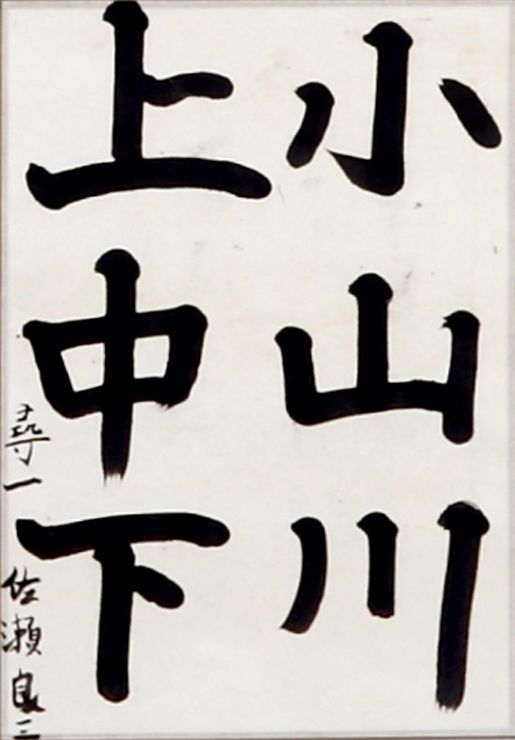 小山川
上中下
尋一 佐瀬良三